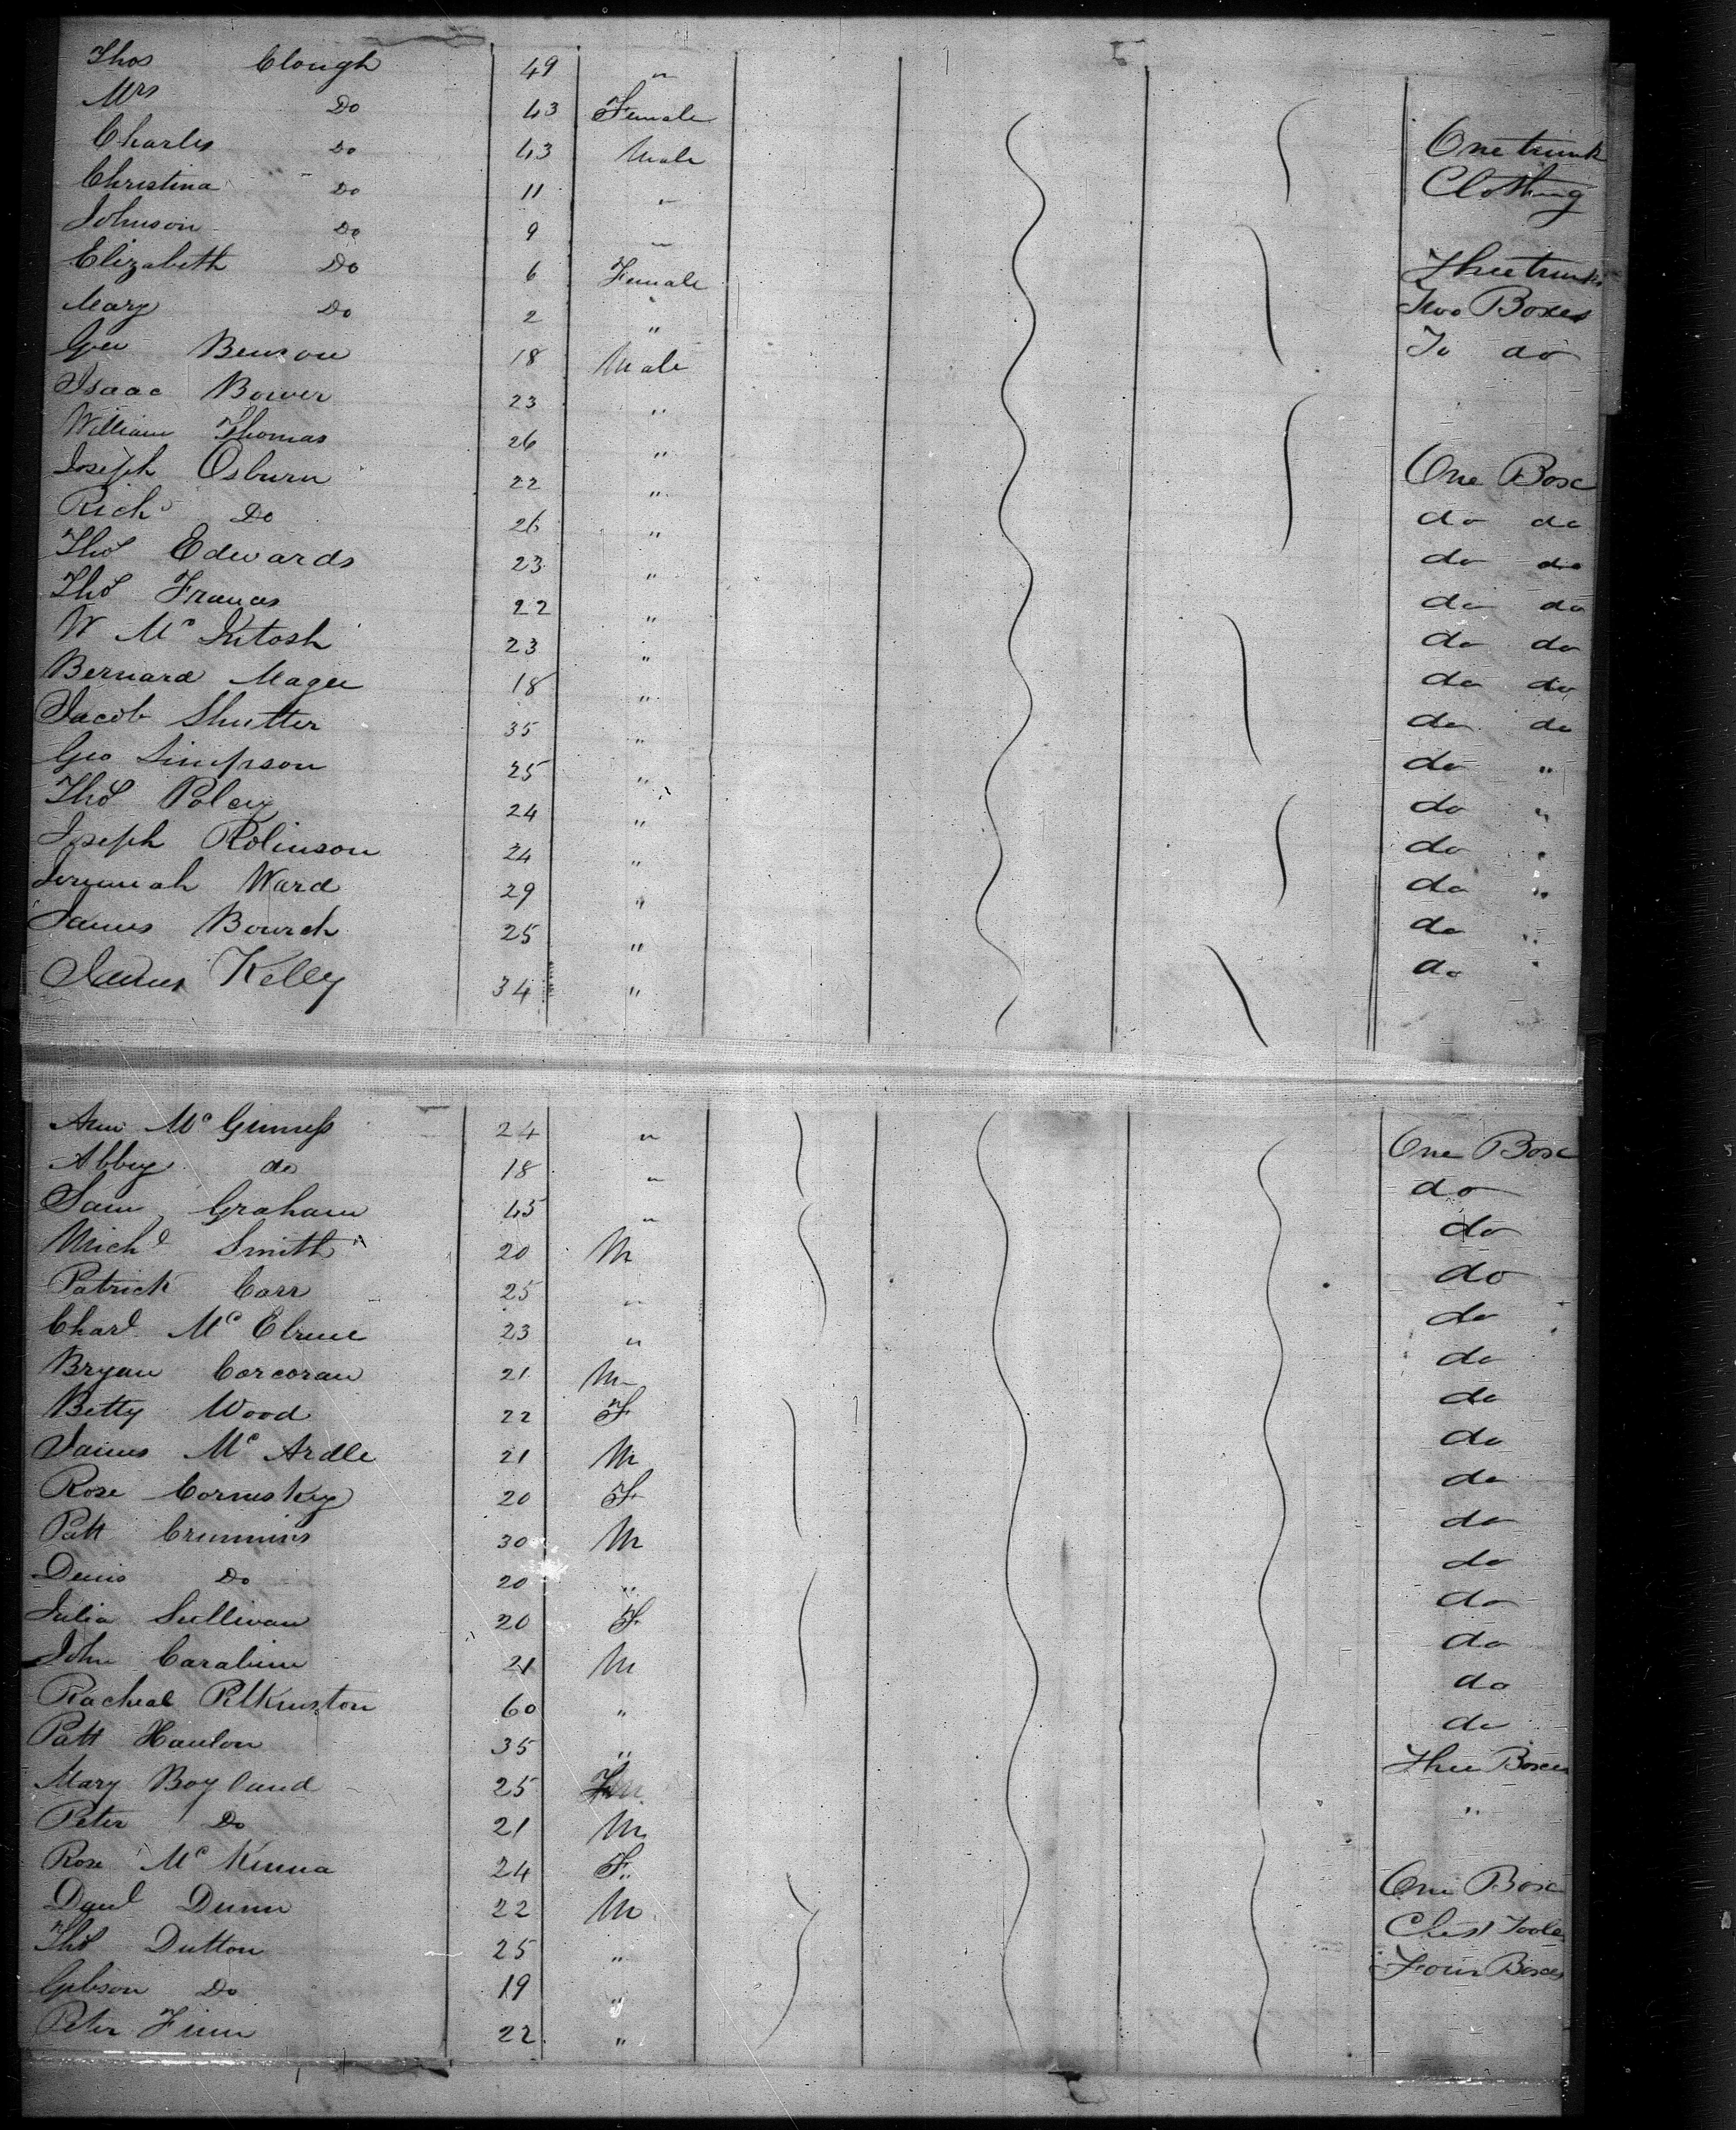 Thos Clough 49 "
Mrs Do 43 Female
Charles Do 43 Male One trunk
Christina Do 11 " Clothing
Johnson Do 9 "
Elizabeth Do 6 Female Three trunks
Mary Do 2 " Two Boxes
Geo Benson 18 Male To do
Isaac Bower 23 "
William Thomas 26 "
Joseph Osburn 22 " One Box
Richd Do 26 " do do
Thos Edwards 23 " do do
Thos Frances 22 " do do
W Mc Kitosh 23 " do do
Bernard Magee 18 " do do
Jacob Shutter 35 " do do
Geo Simpson 25 " do "
Thos Poley 24 " do "
Joseph Rolinson 24 " do "
Jeremiah Ward 29 " do "
James Bourch 25 " do "
James Kelly 34 " do "
Ann Mc Ginness 24 " One Box
Abbey do 18 " do
Sam Graham 45 " do
Michl Smith 20 M do
Patrick Carr 25 " do
Charl Mc 23 " do
Bryan Corcoran 21 M do
Betty Wood 22 F do
James Mc Ardle 21 M do
Rose Cormskey 20 F do
Patt Crummins 30 M do
Denis Do 20 " do
Julia Sullivan 20 F do
John Carabine 21 M do
Racheal Pilkinston 60 " do
Patt Hanlon 35 " Three Boxes
Mary Boyland 25 F "
Peter Do 21 M
Rose Mc Kenna 24 F One Box
Danl Dunn 22 M Chest Tools
Thos Dutton 25 " Four Boxes
Gibson Do 19 "
Peter Finn 22 "